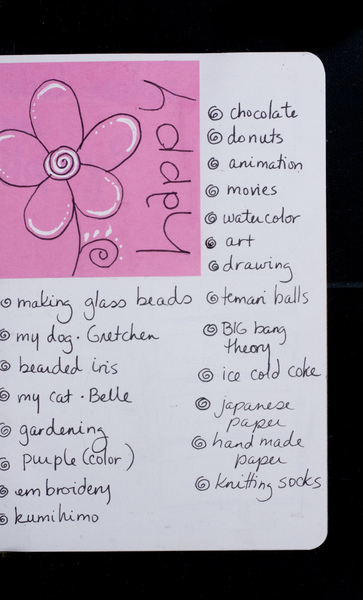 happy
chocolate
donuts
animation
movies
watercolor
art
drawing
making glass beads
my dog · Gretchen
bearded iris
my cat · Belle
gardening
purple (color)
embroidery
kumihimo
temari balls
BIG bang
theory
ice cold coke
japanese
paper
hand made
paper
knitting socks